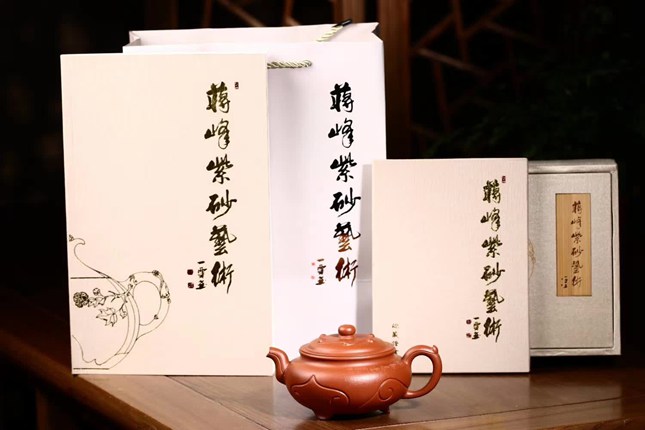 蔣峰紫砂藝術
蔣峰紫砂藝術
蔣峰紫砂藝術
蔣峰紫砂藝術